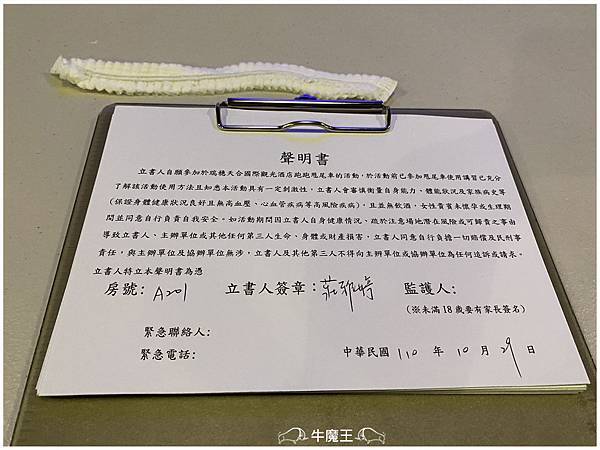 聲明書
立書人自願參加於瑞穗天合國際觀光酒店跑跑甩尾車的活動，於活動前已參加甩尾車使用講習已充分
了解該活動使用方法且知悉本活動具有一定刺激性，立書人會審慎衡量自身能力、體能狀況及家族病史等
(保證身體健康狀況良好且無高血壓、心血管疾病等高風險疾病)，且並無飲酒，女性貴賓未懷孕或生理期
間並同意自行負責自我安全。如活動期間因立書人自身健康情況、疏於注意場地潛在風險或可歸責之事由
導致立書人、主辦單位或其他任何第三人生命、身體或財產損害，立書人同意自行負擔一切賠償及民刑事
責任，與主辦單位及協辦單位無涉，立書人及其他第三人不得向主辦單位或協辦單位為任何追訴或請求。
立書人特立本聲明書為憑
房號：A201 立書人簽章：莊雅婷 監護人：
(※未滿18歲要有家長簽名)
緊急聯絡人：
緊急電話： 中華民國 110 年 10 月 29 日
牛魔王